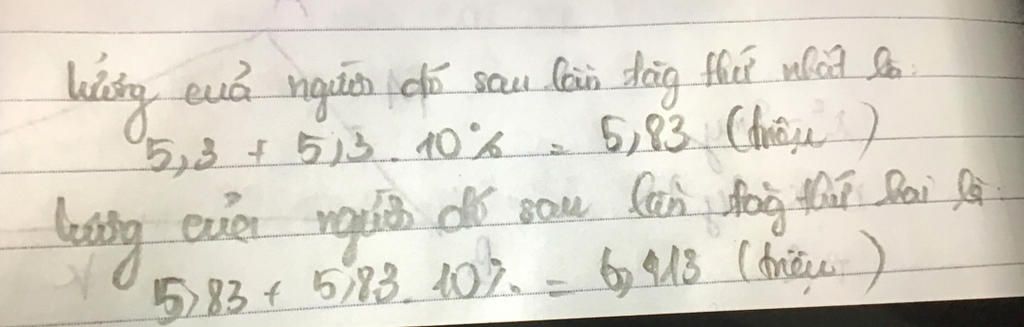 lương của người đó sau lần tăg thứ nhất là:
5,3 + 5,3 . 10% = 5,83 (triệu)
lương của người đó sau lần tăg thứ hai là:
5,83 + 5,83 . 10% = 6,413 (triệu)